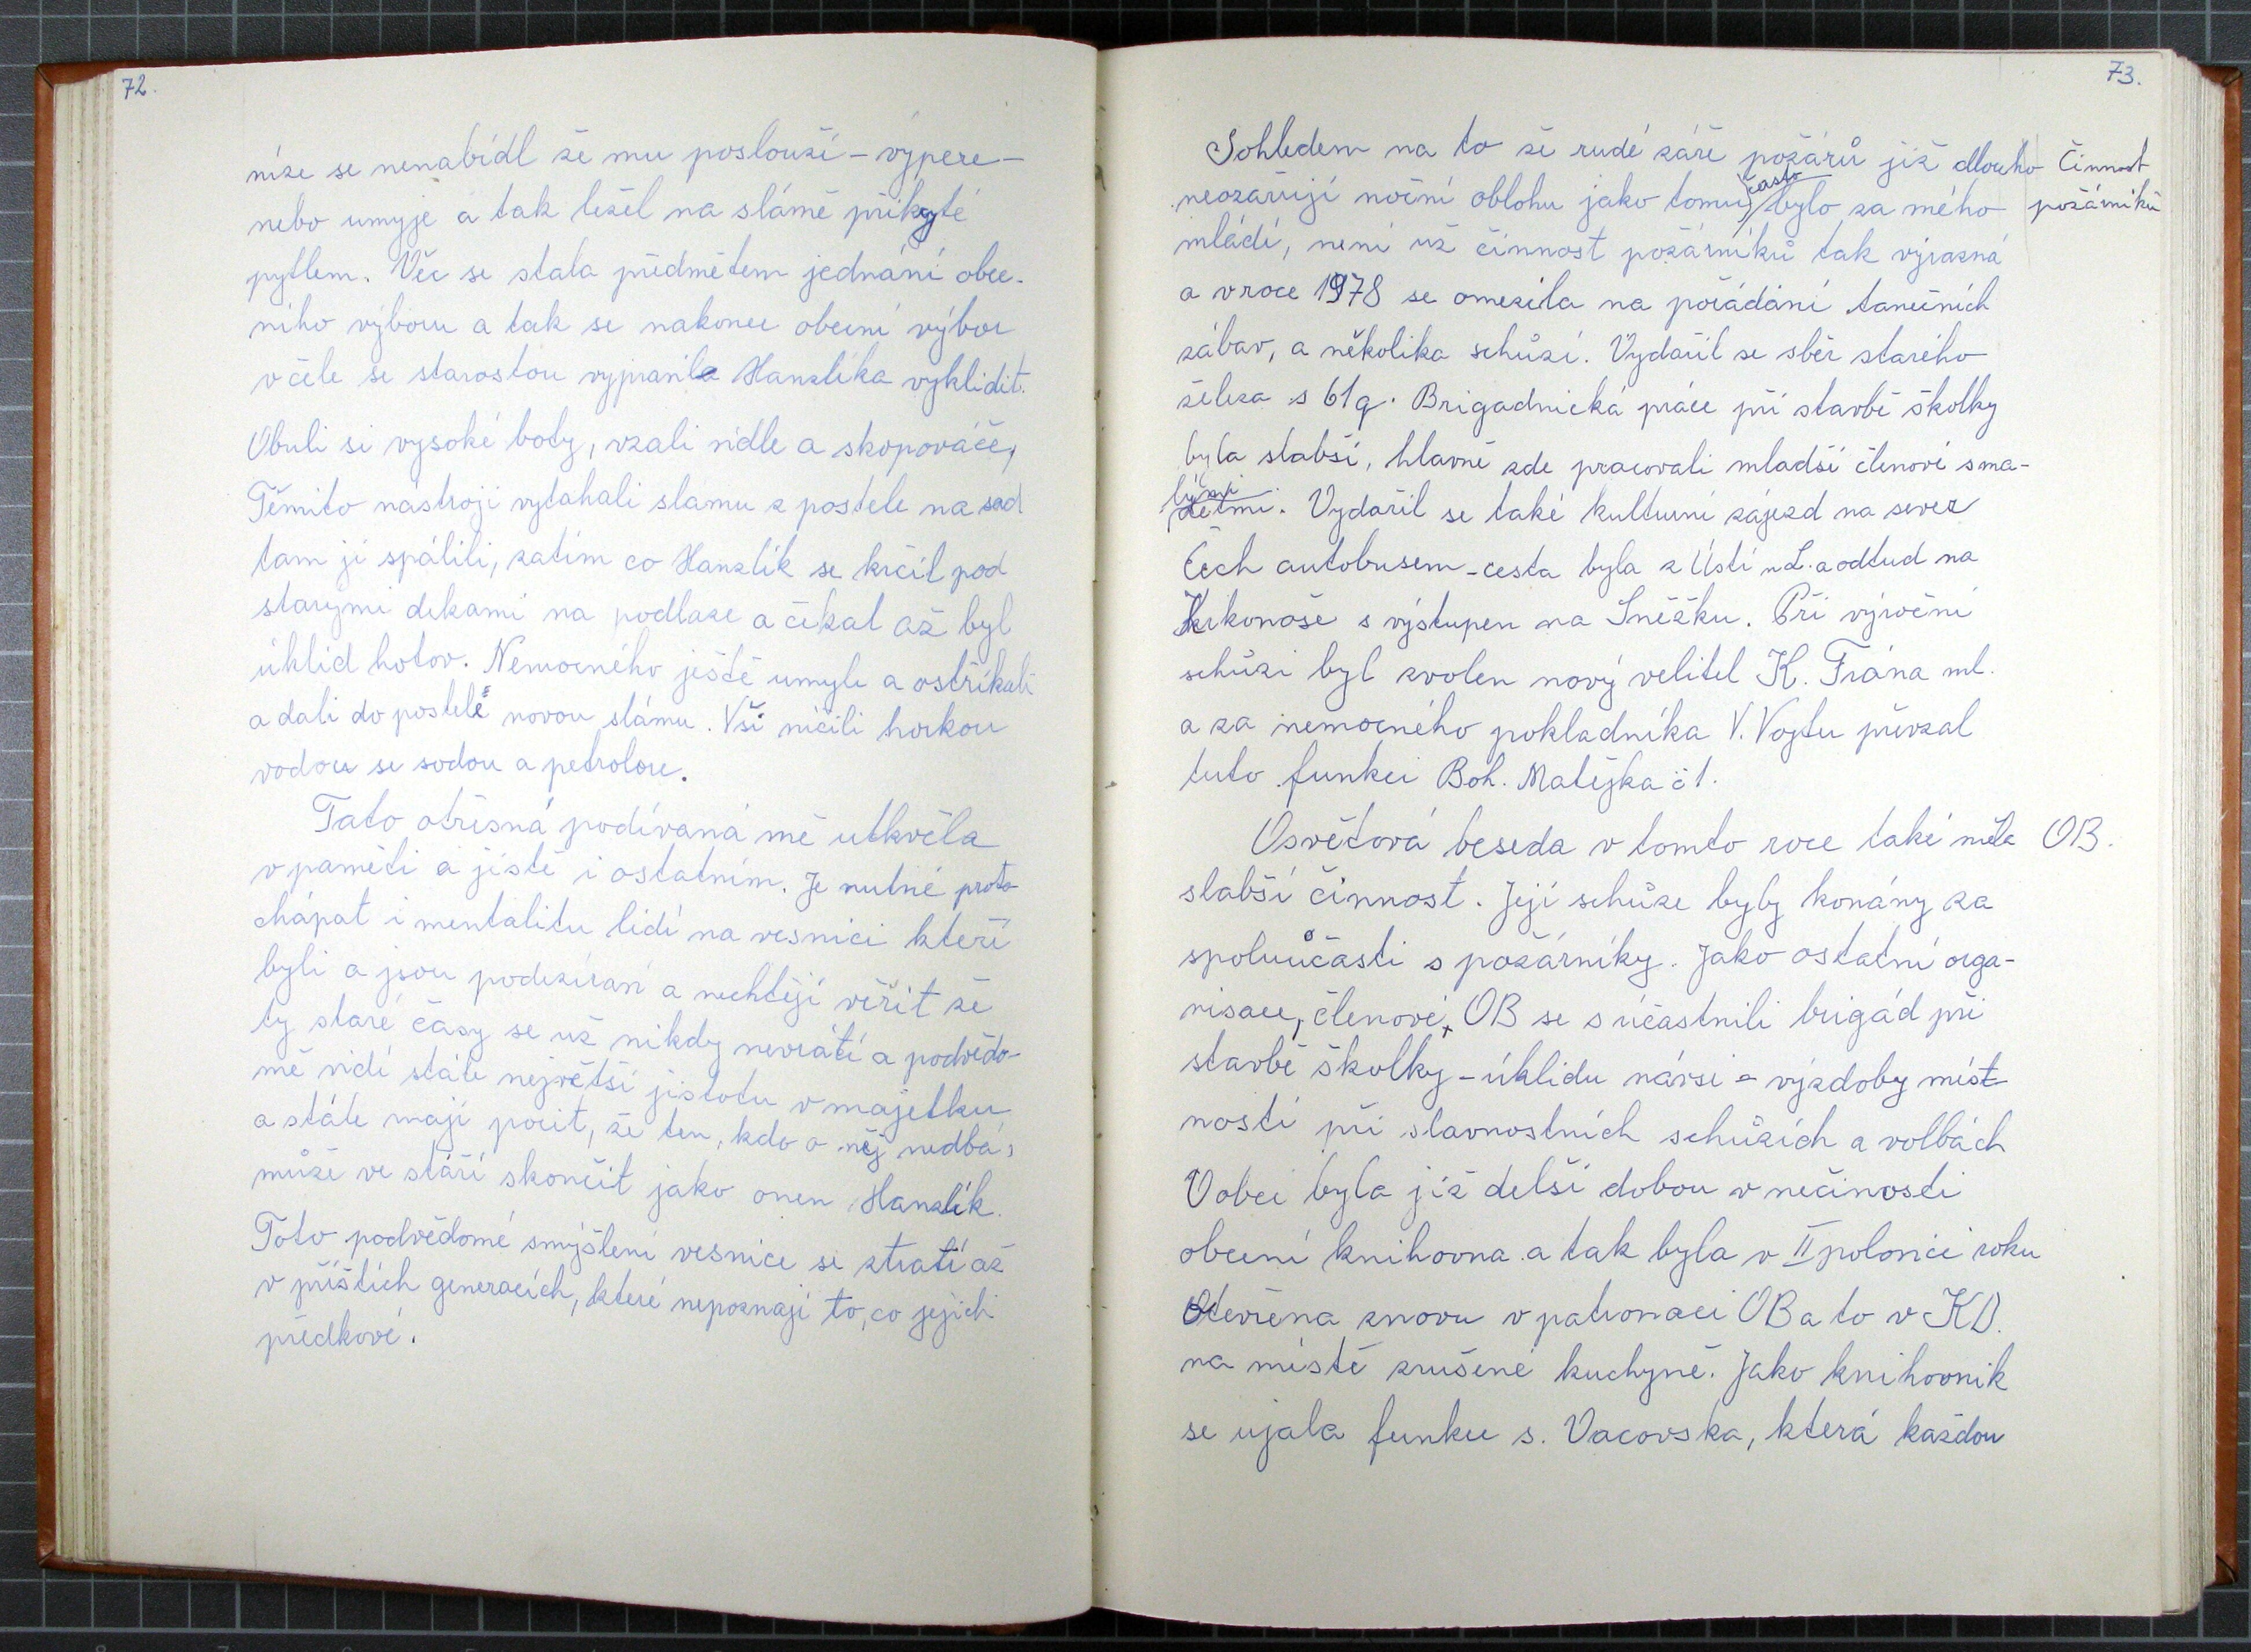 72.
níze se nenabídl že mu poslouží - vypere -
nebo umyje a tak ležel na slámě přikryté
pytlem. Věc se stala předmětem jednání obec-
ního výboru a tak se nakonec obecní výbor
v čele se starostou vypravila Hanzlíka vyklidit.
Obuli si vysoké boty, vzali vidle a skopováče,
Těmito nástroji vytahali slamu z postele na sad
tam ji spálili, zatím co Hanzlík se krčil pod
starými dekami na podlaze a čekal až byl
úklid hotov. Nemocného ještě umyli a ostříkali
a dali do postele novou slámu. Vši ničili horkou
vodou se sodou a petrolou.
Tato otřesná podívaná mě utkvěla
v paměti a jistě i ostatním. Je nutné proto
chápat i mentalitu lidí na vesnici kteří
byli a jsou podezíraní a nechtějí věřit že
ty staré časy se už nikdy nevrátí a podvědo-
mě vidí stále největší jistotu v majetku
a stále mají pocit, že ten, kdo o něj nedbá,
může ve stáří skončit jako onen Hanzlík.
Toto podvědomé smýšlení vesnice se ztratí až
v příštích generacích, které nepoznají to, co jejich
předkové.
73.
Sohledem na to že rudé záře požárů již dlouho
neozařují noční oblohu jako tomu často bylo za mého
mládí, není už činnost požárníků tak výrazná
a v roce 1978 se omezila na pořádání tanečních
zábav, a několika schůzí. Vydařil se sběr starého
železa s 61q. Brigadnická práce při stavbě školky
byla slabší, hlavně zde pracovali mladší členové s ma-
lými dětmi. Vydařil se také kulturní zájezd na sever
Čech autobusem - cesta byla z Ústí n L. a odtud na
Krkonoše s výstupen na Sněžku. Při výroční
schůzi byl zvolen nový velitel K. Frána ml.
a za nemocného pokladníka V. Vojtu převzal
tuto funkci Boh. Matějka č 1.
Osvětová beseda v tomto roce také měla
slabší činnost. Její schůze byly konány za
spoluúčasti s požárníky. Jako ostatní orga-
nisace, členové OB se súčastnili brigád při
stavbě školky - úklidu návsi - výzdoby míst-
ností při slavnostních schůzích a volbách
V obci byla již delší dobou v nečinosti
obecní knihovna a tak byla v II polovici roku
otevřena znovu v patronaci OB a to v KD.
na místě zrušené kuchyně. Jako knihovník
se ujala funkce s. Vacovska, která každou
Činnost
požárníků
OB.